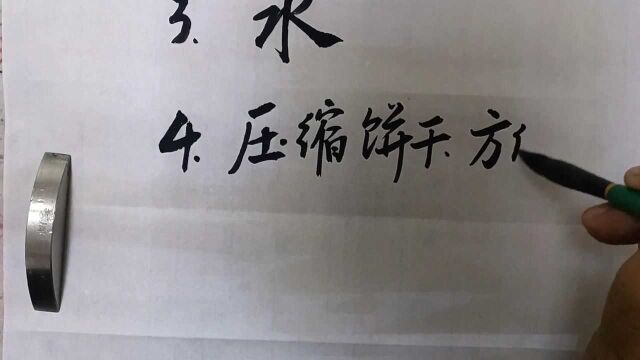 3. 水
4. 压缩饼干. 方